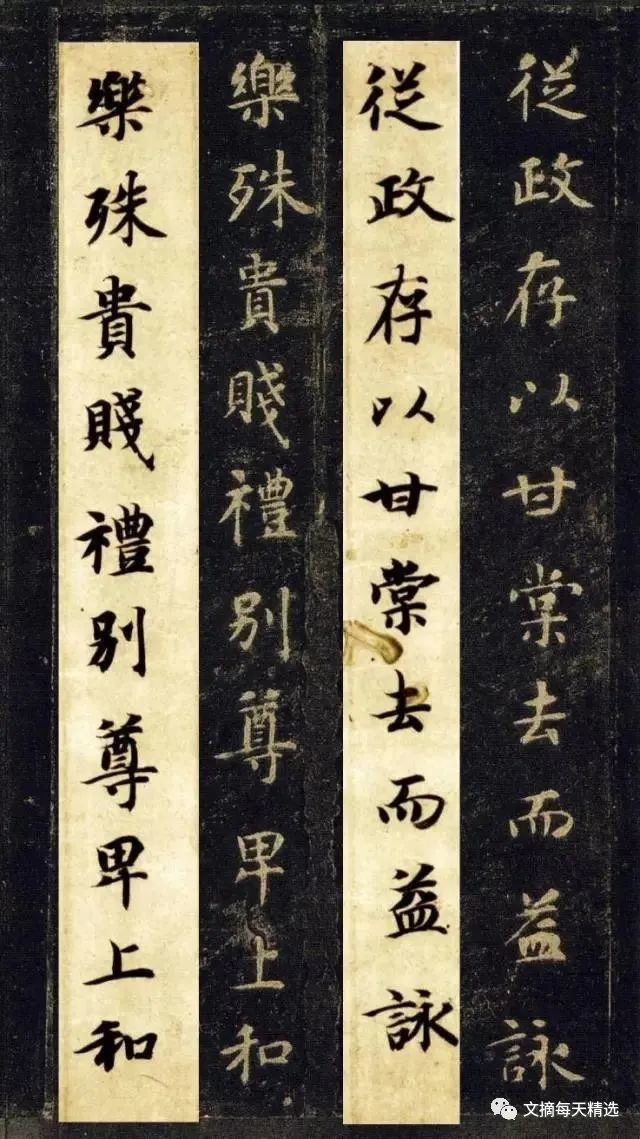 從政存以甘棠去而益詠
從政存以甘棠去而益詠
樂殊貴賤禮别尊卑上和
樂殊貴賤禮别尊卑上和
文摘每天精选